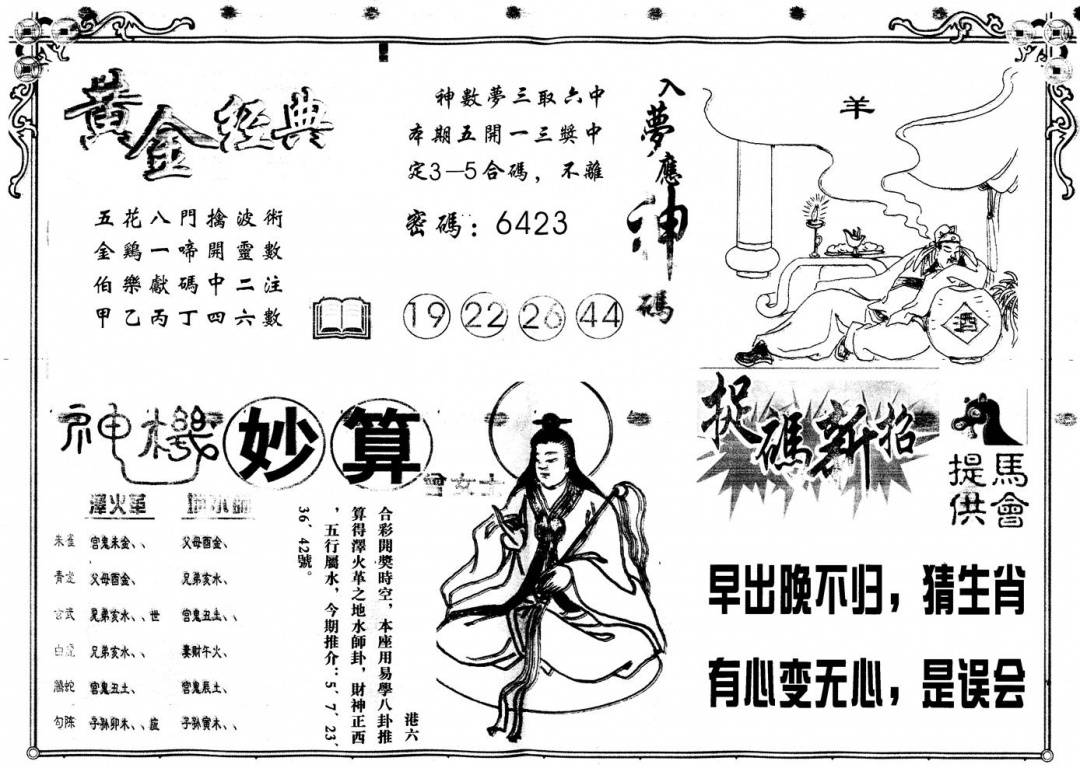 黄金经典
五花八門擒波術
金鷄一啼開靈數
伯樂獻碼中二注
甲乙丙丁四六數
神數夢三取六中
本期五開一三獎中
定3—5合碼，不離
密碼：6423
19 22 26 44
入夢應神碼
羊
酒
神機妙算
曾女士
澤火革
朱雀 官鬼未金、、 父母酉金、
青龙 父母酉金、 兄弟亥水、、
玄武 兄弟亥水、、世 官鬼丑土、、
白虎 兄弟亥水、、 妻财午火、
螣蛇 官鬼丑土、 官鬼辰土、
勾陈 子孙卯木、、应 子孙寅木、、
港六
合彩開獎時空，本座用易學八卦推
算得澤火革之地水師卦，財神正西
，五行屬水，今期推介：5、7、23、
36、42號。
捉碼新招
馬會
提供
早出晚不归，猜生肖
有心变无心，是误会